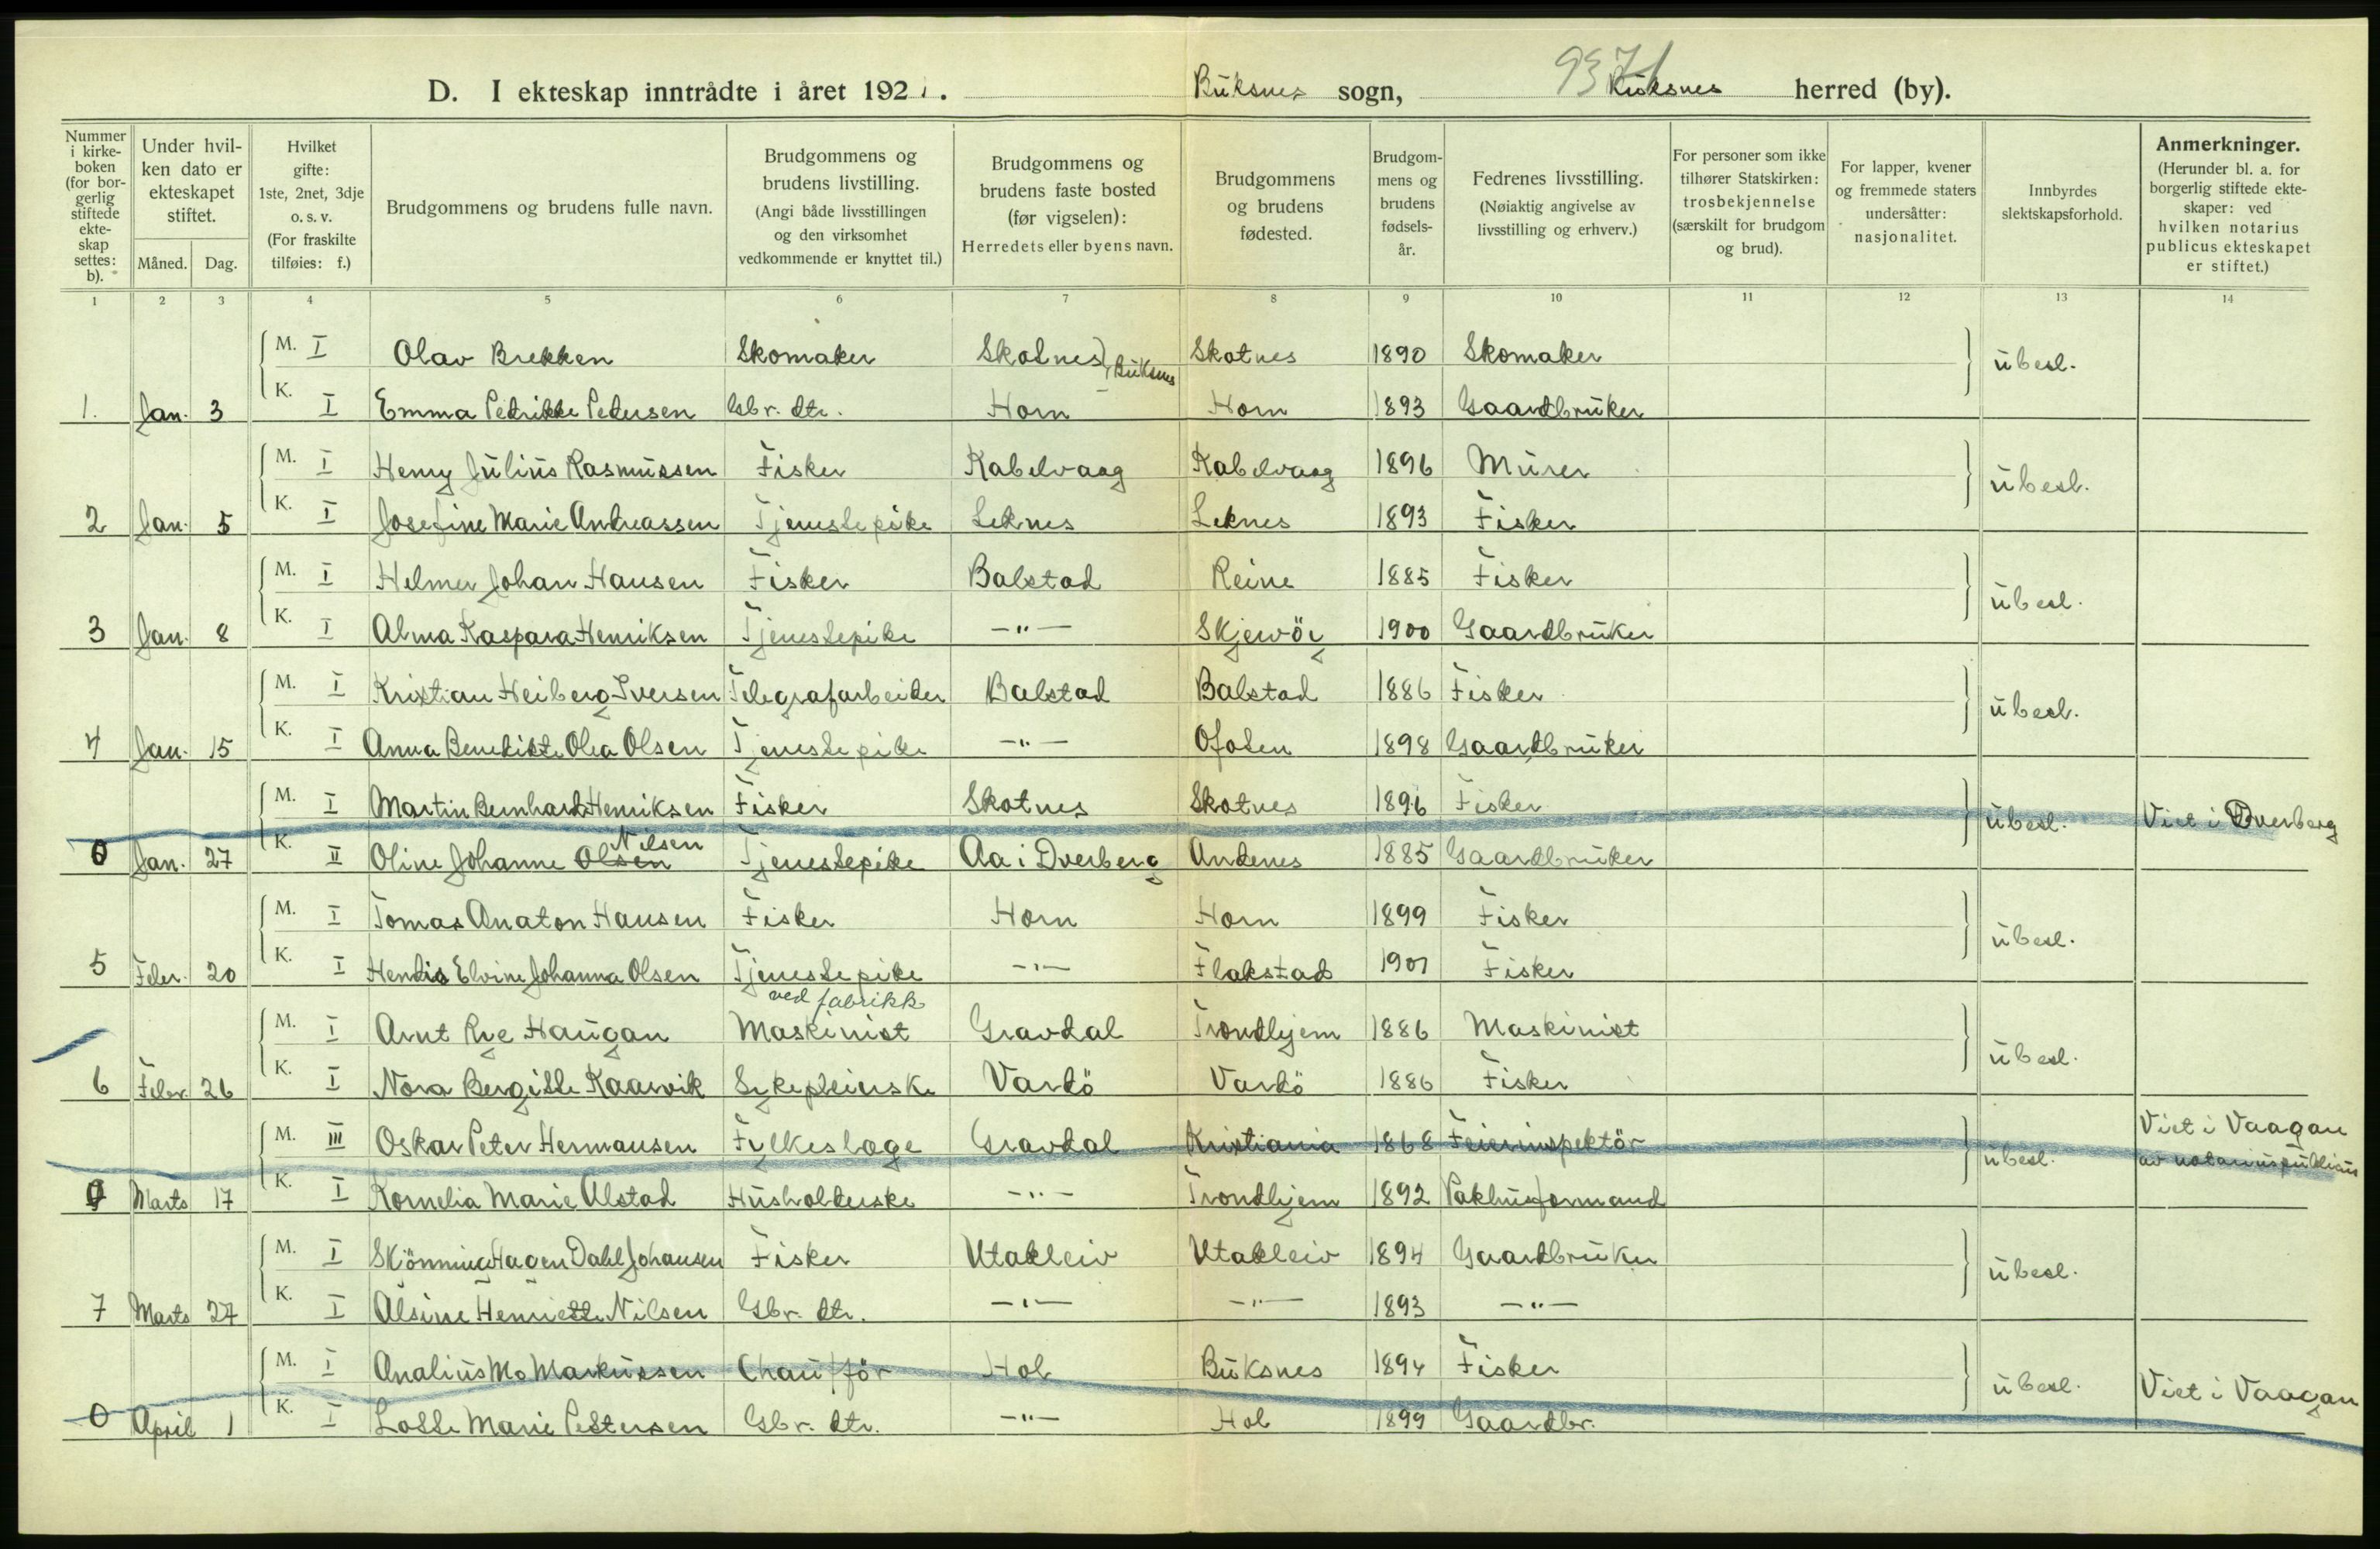 9371
D. I ekteskap inntrådte i året 1921. Buksnes sogn, Buksnes herred (by).
Nummer i kirke-boken (for bor-gerlig stiftede ekte-skap settes: b).
Under hvil-ken dato er ekteskapet stiftet. Måned. Dag.
Hvilket gifte: 1ste, 2net, 3dje o. s. v. (For fraskilte tilføies: f.)
Brudgommens og brudens fulle navn.
Brudgommens og brudens livstilling. (Angi både livsstillingen og den virksomhet vedkommende er knyttet til.)
Brudgommens og brudens faste bosted (før vigselen): Herredets eller byens navn.
Brudgommens og brudens fødested.
Brudgom-mens og brudens fødsels-år.
Fedrenes livsstilling. (Nøiaktig angivelse av livsstilling og erhverv.)
For personer som ikke tilhører Statskirken: trosbekjennelse (særskilt for brudgom og brud).
For lapper, kvener og fremmede staters undersåtter: nasjonalitet.
Innbyrdes slektskapsforhold.
Anmerkninger. (Herunder bl. a. for borgerlig stiftede ekte-skaper: ved hvilken notarius publicus ekteskapet er stiftet.)
1 2 3 4 5 6 7 8 9 10 11 12 13 14
M. I Olav Brekken Skomaker Skotnes Buksnes Skotnes 1890 Skomaker ubesl.
1. Jan. 3 K. I Emma Petrikke Petersen Gbr. dtr. Horn Horn 1893 Gaardbruker
M. I Henry Julius Rasmussen Fisker Kabelvaag Kabelvaag 1896 Murer ubesl.
2 Jan. 5 K. I Josefine Marie Andreassen Tjenestepike Leknes Leknes 1893 Fisker
M. I Helmer Johan Hansen Fisker Balstad Reine 1885 Fisker ubesl.
3 Jan. 8 K. I Alma Kaspara Henriksen Tjenestepike —"— Skjervöy 1900 Gaardbruker
M. I Kristian Heiberg Iversen Telegrafarbeider Balstad Balstad 1886 Fisker ubesl.
4 Jan. 15 K. I Anna Benedikte Olea Olsen Tjenestepike —"— Ofoten 1898 Gaardbruker
M. I Martin Bernhard Henriksen Fisker Skotnes Skotnes 1896 Fisker ubesl. Viet i Dverberg
0 Jan. 27 K. II Oline Johanne Olsen Nilsen Tjenestepike Aa i Dverberg Andenes 1885 Gaardbruker
M. I Tomas Anaton Hansen Fisker Horn Horn 1899 Fisker ubesl.
5 Febr. 20 K. I Hendis Elvine Johanna Olsen Tjenestepike —"— Flakstad 1901 Fisker
M. I Arnt Rye Haugan ved fabrikk Maskinist Gravdal Trondhjem 1886 Maskinist ubesl.
6 Febr. 26 K. I Nora Bergitte Kaarvik Sykepleierske Vardö Vardö 1886 Fisker
M. III Oskar Peter Hermansen Fylkeslæge Gravdal Kristiania 1868 Feierinspektör ubesl. Viet i Vaagan av notarius publicus
0 Marts 17 K. I Kornelia Marie Alstad Husholderske —"— Trondhjem 1892 Pakhusformand
M. I Skönning Hagen Dahl Johansen Fisker Utakleiv Utakleiv 1894 Gaardbruker ubesl.
7 Marts 27 K. I Alsine Henriette Nilsen Gbr. dtr. —"— —"— 1893 —"—
M. I Analius Mo Markussen Chaufför Hol Buksnes 1894 Fisker ubesl. Viet i Vaagan
0 April 1 K. I Lotte Marie Pettersen Gbr. dtr. —"— Hol 1899 Gaardbr.